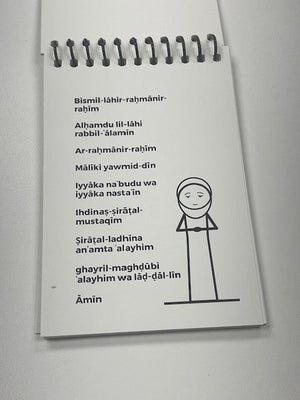 Bismil-lāhir-raḥmānir-
raḥīm
Alḥamdu lil-lāhi
rabbil-ʿālamīn
Ar-raḥmānir-raḥīm
Māliki yawmid-dīn
Iyyāka naʿbudu wa
iyyāka nastaʿīn
Ihdinaṣ-ṣirāṭal-
mustaqīm
Ṣirāṭal-ladhīna
anʿamta ʿalayhim
ghayril-maghḍūbi
ʿalayhim wa lāḍ-ḍāl-līn
Āmīn